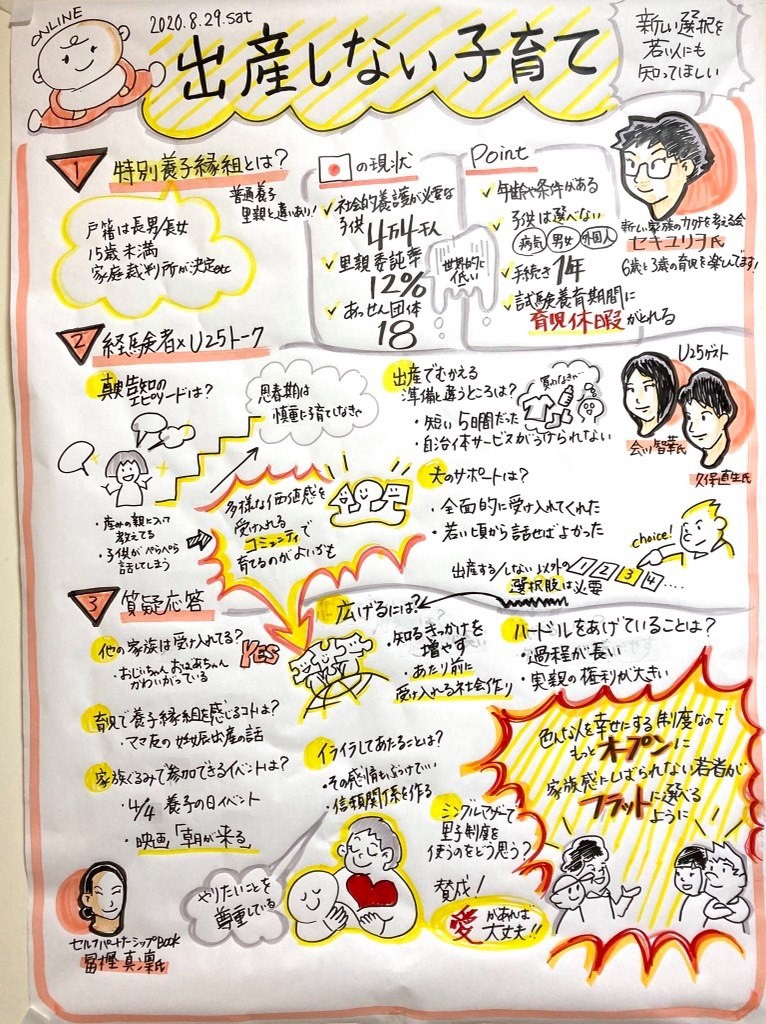 ONLINE
2020.8.29.sat
出産しない子育て
新しい選択を
若い人にも
知ってほしい
1 特別養子縁組とは?
普通養子
里親と違いあり!
戸籍は長男/長女
15歳未満
家庭裁判所が決定etc
の現状
社会的養護が必要な
子供 4万4千人
里親委託率
12%
あっせん団体
18
世界的に
低い
Point
年齢や条件がある
子供は選べない
病気 男女 外国人
手続き 1年
試験養育期間に
育児休暇がとれる
新しい家族のカタチを考える会
セキユリヲ氏
6歳と3歳の育児を楽しんでます!
2 経験者×U25トーク
真実告知の
エピソードは?
思春期は
慎重に子育てしなきゃ
・産みの親について
教えてる
・子供がぺらぺら
話してしまう
多様な価値感を
受け入れる
コミュニティで
育てるのがよいかも
出産でむかえる
準備と違うところは?
買わなきゃ
・短い5日間だった
・自治体サービスがうけられない
夫のサポートは?
・全面的に受け入れてくれた
・若い頃から話せばよかった
U25ゲスト
会川智華氏
久保直生氏
choice!
出産する/しない以外の
1 2 3 4 ....
選択肢は必要
3 質疑応答
他の家族は受け入れてる?
YES
・おじいちゃんおばあちゃん
かわいがっている
育児で養子縁組を感じるコトは?
・ママ友の妊娠出産の話
家族ぐるみで参加できるイベントは?
・4/4 養子の日イベント
・映画「朝が来る」
広げるには?
・知るきっかけを
増やす
・あたり前に
受け入れる社会作り
ハードルをあげていることは?
・過程が長い
・実親の権利が大きい
イライラしてあたることは?
・その感情もぶつけていい
・信頼関係を作る
シングルマザーで
里子制度を
使うのをどう思う?
賛成!
愛があれば
大丈夫!!
やりたいことを
尊重している
色んな人を幸せにする制度なので
もっとオープンに
家族感にしばられない若者が
フラットに選べる
ように
セルフパートナーシップBook
冨樫真凜氏